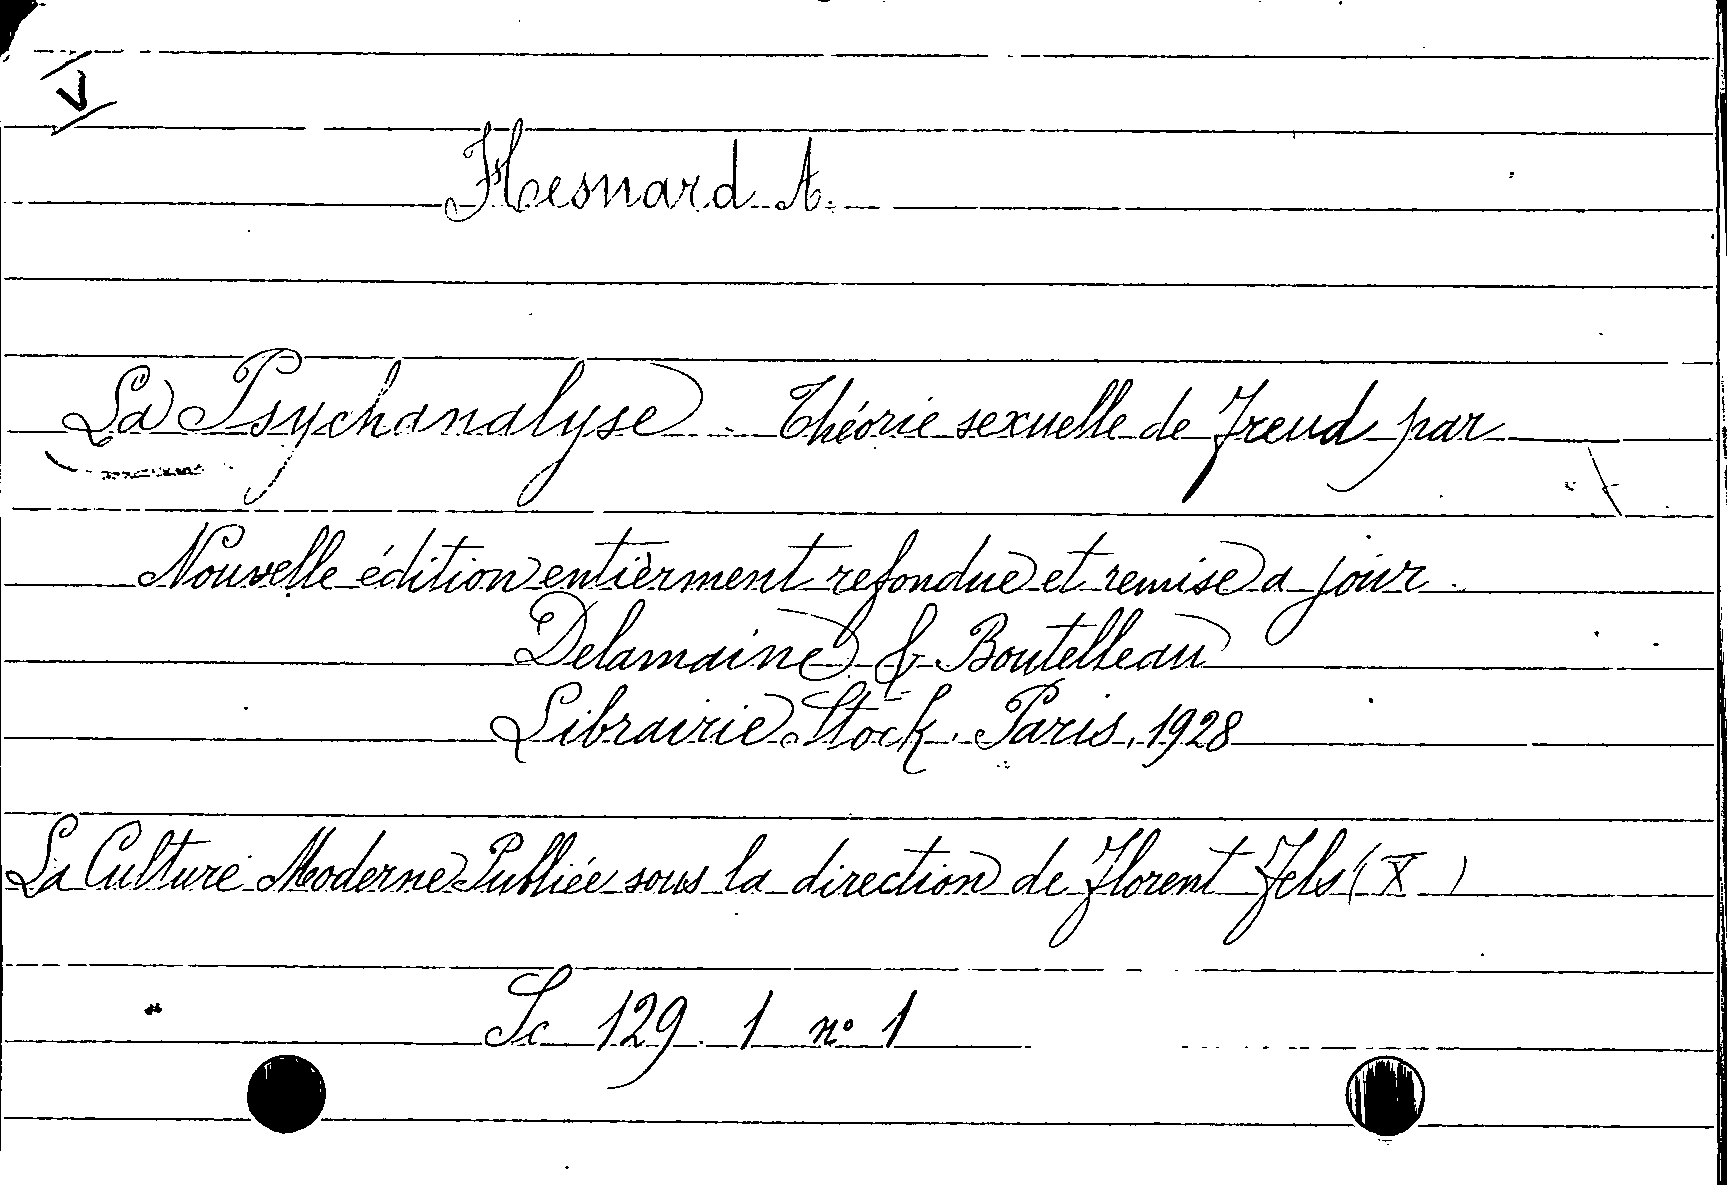 V
Hesnard A.
La Psychanalyse. Théorie sexuelle de Freud par
Nouvelle édition entièrment refondue et remise a jour.
Delamaine & Boutelleau
Librairie Stock. Paris. 1928
La Culture Moderne Publiée sous la direction de Florent Fels (X)
Sc 129. 1 nº 1